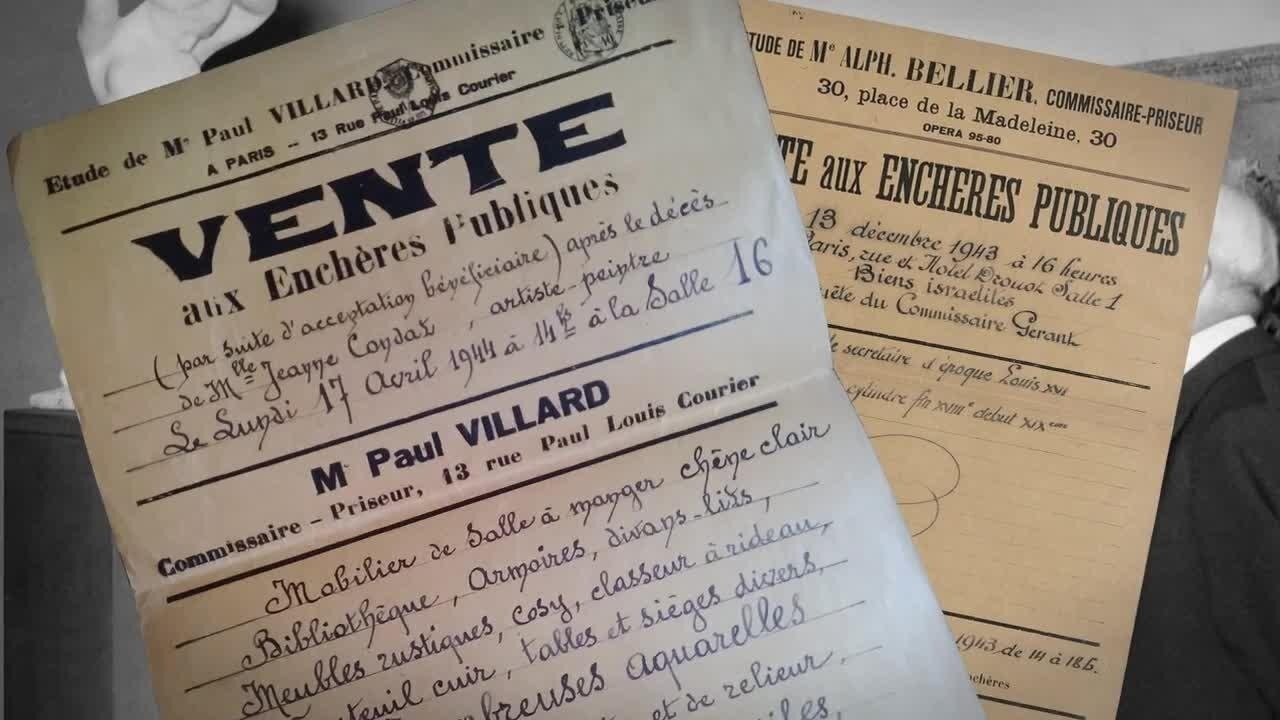 Etude de Mᵉ Paul VILLARD Commissaire Priseur
A PARIS – 13 Rue Paul Louis Courier
VENTE
aux Enchères Publiques
(par suite d'acceptation bénéficiaire) après le décès
de Mˡˡᵉ Jeanne Condat, artiste-peintre
Le Lundi 17 Avril 1944 à 14ʰˢ à la Salle 16
Mᵉ Paul VILLARD
Commissaire – Priseur, 13 rue Paul Louis Courier
Mobilier de Salle à manger chêne clair
Bibliothèque, Armoires, divans-lits,
Meubles rustiques, cosy, classeur à rideau,
teuil cuir, tables et sièges divers,
breuses aquarelles
et de relieur,
iles,
TUDE DE Mᵉ ALPH. BELLIER, COMMISSAIRE-PRISEUR
30, place de la Madeleine, 30
OPERA 95-80
TE aux ENCHERES PUBLIQUES
13 décembre 1943 à 16 heures
Paris, rue et Hotel Drouot Salle 1
Biens israelites
uête du Commissaire Gerant
le secretaire d'époque Louis XVI
cylindre fin XVIIIᵉ début XIXᵉᵐᵉ
1943 de 14 à 18h.
nchères